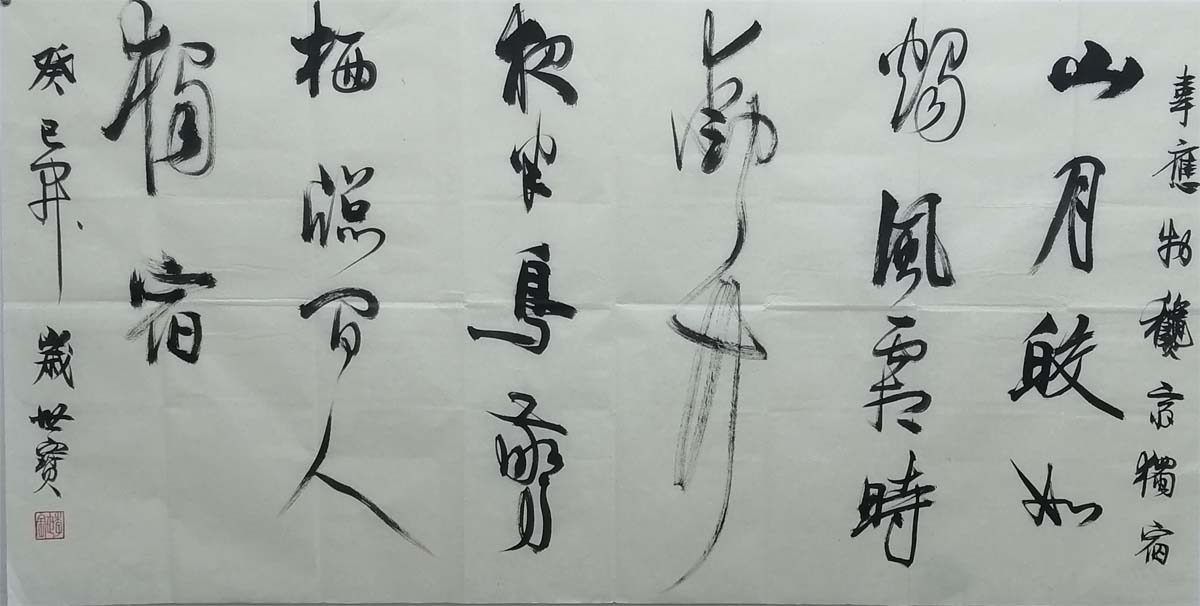 韋應物龝齋獨宿
山月皎如
燭風霜時
動竹
夜半鳥驚
栖牕间人
獨宿
癸巳年歲世寶